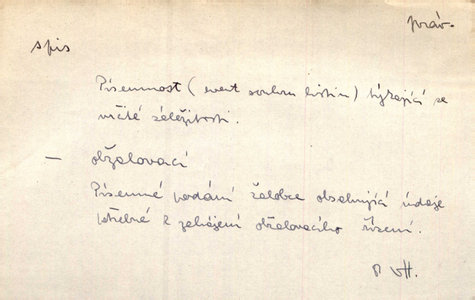 práv.
spis
Písemnost (event souhrn listin) týkající se
určité záležitosti.
— obžalovací
Písemné podání žalobce obsahující údaje
potřebné k zahájení obžalovacího řízení.